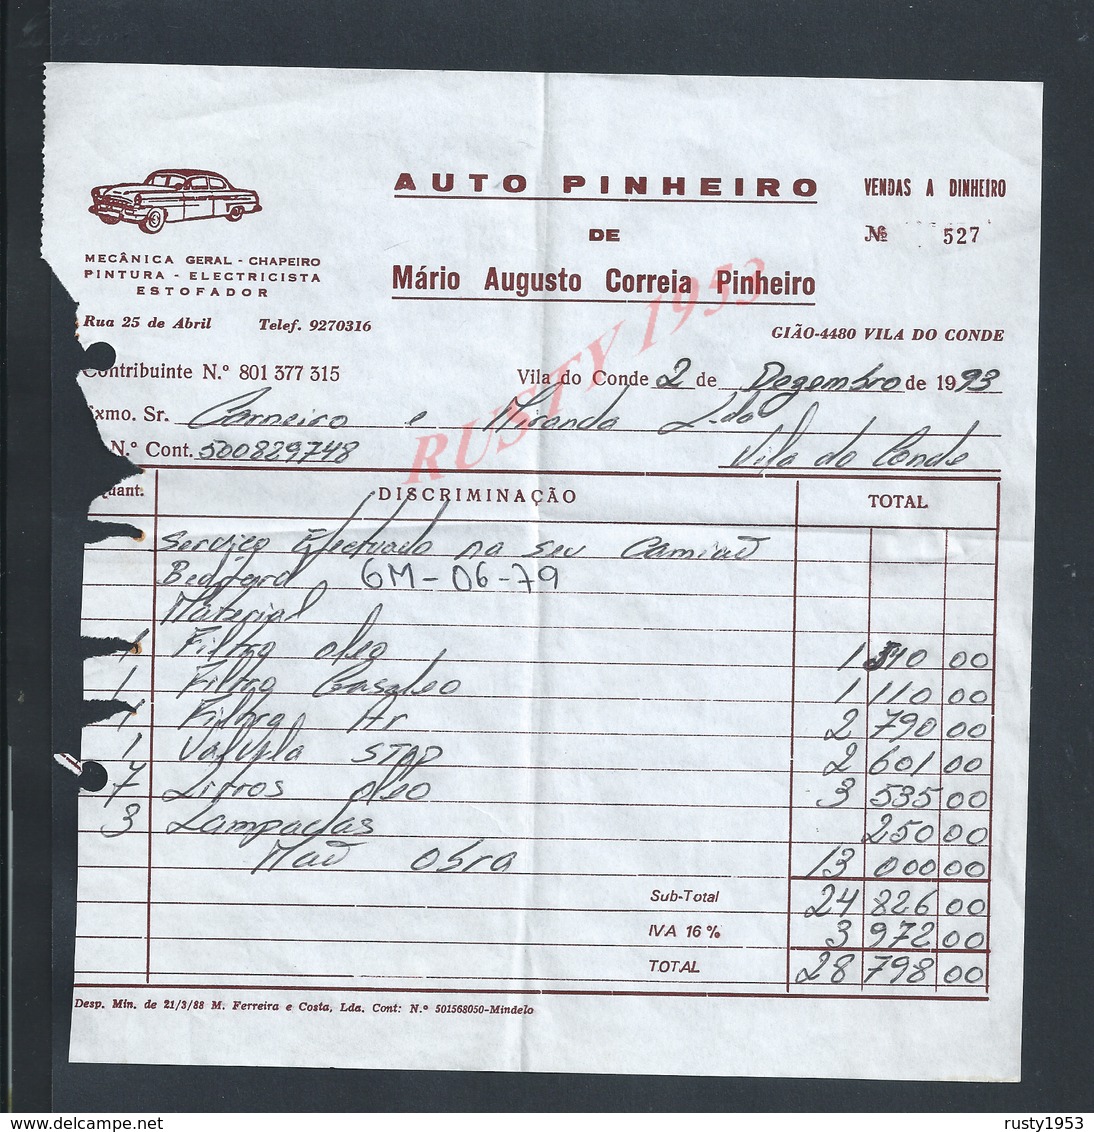 AUTO PINHEIRO
VENDAS A DINHEIRO
DE
№ 527
MECÂNICA GERAL - CHAPEIRO
PINTURA - ELECTRICISTA
ESTOFADOR
Mário Augusto Correia Pinheiro
Rua 25 de Abril Telef. 9270316
GIÃO-4480 VILA DO CONDE
RUSTY 1953
Contribuinte N.º 801 377 315
Vila do Conde 2 de Dezembro de 1993
Exmo. Sr. Carneiro e Miranda L.da
N.º Cont. 500829748 Vila do Conde
Quant. DISCRIMINAÇÃO TOTAL
Serviço Efectuado na seu Camiaõ
Bedford GM-06-79
Material
1 Filtro oleo 1 540 00
1 Filtro Gasoleo 1 110 00
1 Filtro Ar 2 790 00
1 Valvula STOP 2 601 00
7 Litros oleo 3 535 00
3 Lampadas 250 00
Maõ obra 13 000 00
Sub-Total 24 826 00
IVA 16 % 3 972 00
TOTAL 28 798 00
Desp. Min. de 21/3/88 M. Ferreira e Costa, Lda. Cont: N.º 501568050-Mindelo
delcampe.net
rusty1953